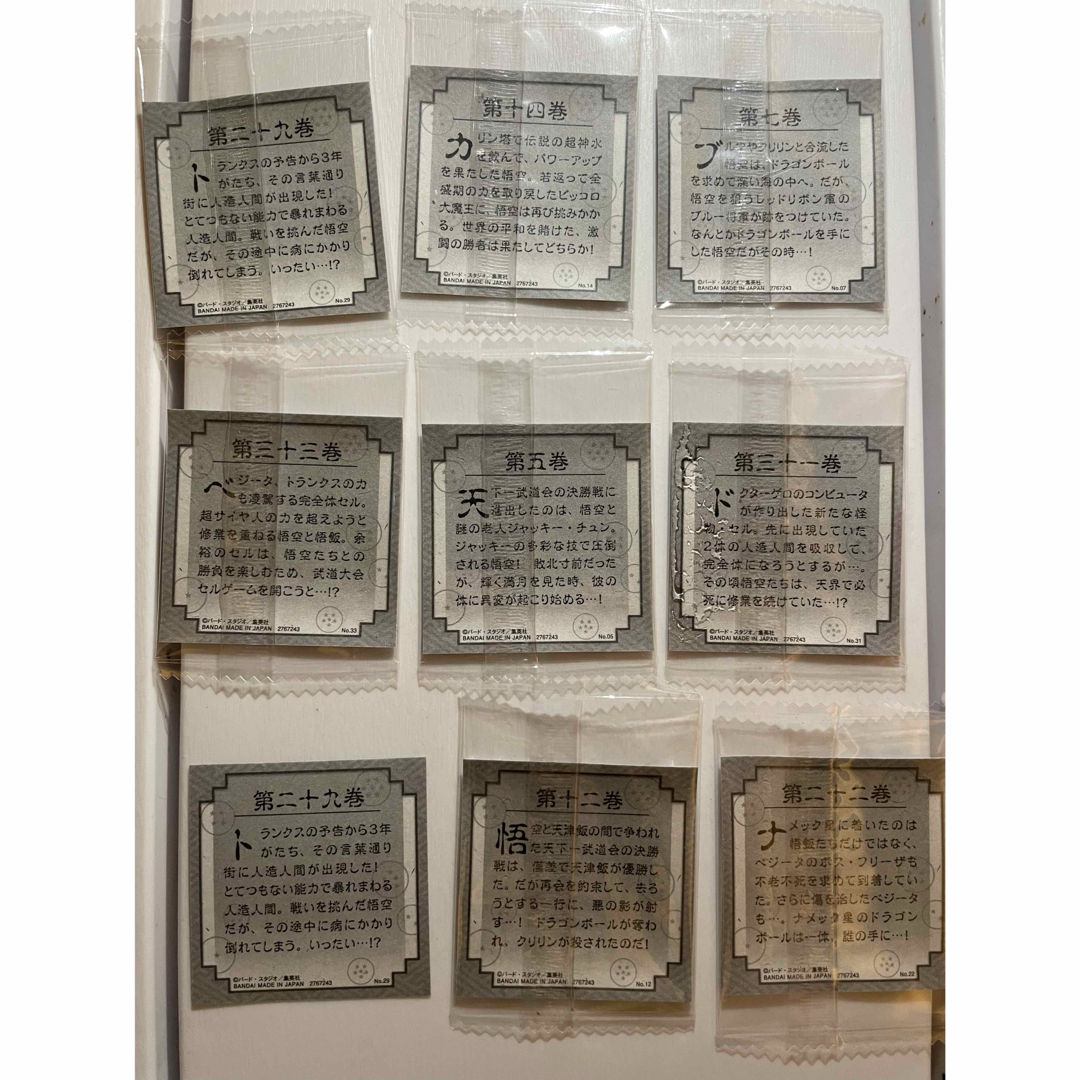 第二十九巻
トランクスの予告から3年
がたち、その言葉通り
街に人造人間が出現した!
とてつもない能力で暴れまわる
人造人間。戦いを挑んだ悟空
だが、その途中に病にかかり
倒れてしまう。いったい…!?
©バード・スタジオ/集英社
BANDAI MADE IN JAPAN 2767243 No.29
第十四巻
カリン塔で伝説の超神水
を飲んで、パワーアップ
を果たした悟空。若返って全
盛期の力を取り戻したピッコロ
大魔王に、悟空は再び挑みかか
る。世界の平和を賭けた、激
闘の勝者は果たしてどちらか!
©バード・スタジオ/集英社
BANDAI MADE IN JAPAN 2767243 No.14
第七巻
ブルマやクリリンと合流した
悟空は、ドラゴンボール
を求めて深い海の中へ。だが、
悟空を狙うレッドリボン軍の
ブルー将軍が跡をつけていた。
なんとかドラゴンボールを手に
した悟空だがその時…!
©バード・スタジオ/集英社
BANDAI MADE IN JAPAN 2767243 No.07
第三十三巻
ベジータ、トランクスの力
も凌駕する完全体セル。
超サイヤ人の力を超えようと
修業を重ねる悟空と悟飯。余
裕のセルは、悟空たちとの
勝負を楽しむため、武道大会
セルゲームを開こうと…!?
©バード・スタジオ/集英社
BANDAI MADE IN JAPAN 2767243 No.33
第五巻
天下一武道会の決勝戦に
進出したのは、悟空と
謎の老人ジャッキー・チュン。
ジャッキーの多彩な技で圧倒
される悟空! 敗北寸前だった
が、輝く満月を見た時、彼の
体に異変が起こり始める…!
©バード・スタジオ/集英社
BANDAI MADE IN JAPAN 2767243 No.05
第三十一巻
ドクターゲロのコンピュータ
が作り出した新たな怪
物・セル。先に出現していた
2体の人造人間を吸収して、
完全体になろうとするが…。
その頃悟空たちは、天界で必
死に修業を続けていた…!?
©バード・スタジオ/集英社
BANDAI MADE IN JAPAN 2767243 No.31
第二十九巻
トランクスの予告から3年
がたち、その言葉通り
街に人造人間が出現した!
とてつもない能力で暴れまわる
人造人間。戦いを挑んだ悟空
だが、その途中に病にかかり
倒れてしまう。いったい…!?
©バード・スタジオ/集英社
BANDAI MADE IN JAPAN 2767243 No.29
第十二巻
悟空と天津飯の間で争われ
た天下一武道会の決勝
戦は、僅差で天津飯が優勝し
た。だが再会を約束して、去ろ
うとする一行に、悪の影が射
す…! ドラゴンボールが奪わ
れ、クリリンが殺されたのだ!
©バード・スタジオ/集英社
BANDAI MADE IN JAPAN 2767243 No.12
第二十二巻
ナメック星に着いたのは
悟飯たちだけではなく、
ベジータのボス・フリーザも
不老不死を求めて到着してい
た。さらに傷を治したベジータ
も…。ナメック星のドラゴン
ボールは一体、誰の手に…!
©バード・スタジオ/集英社
BANDAI MADE IN JAPAN 2767243 No.22